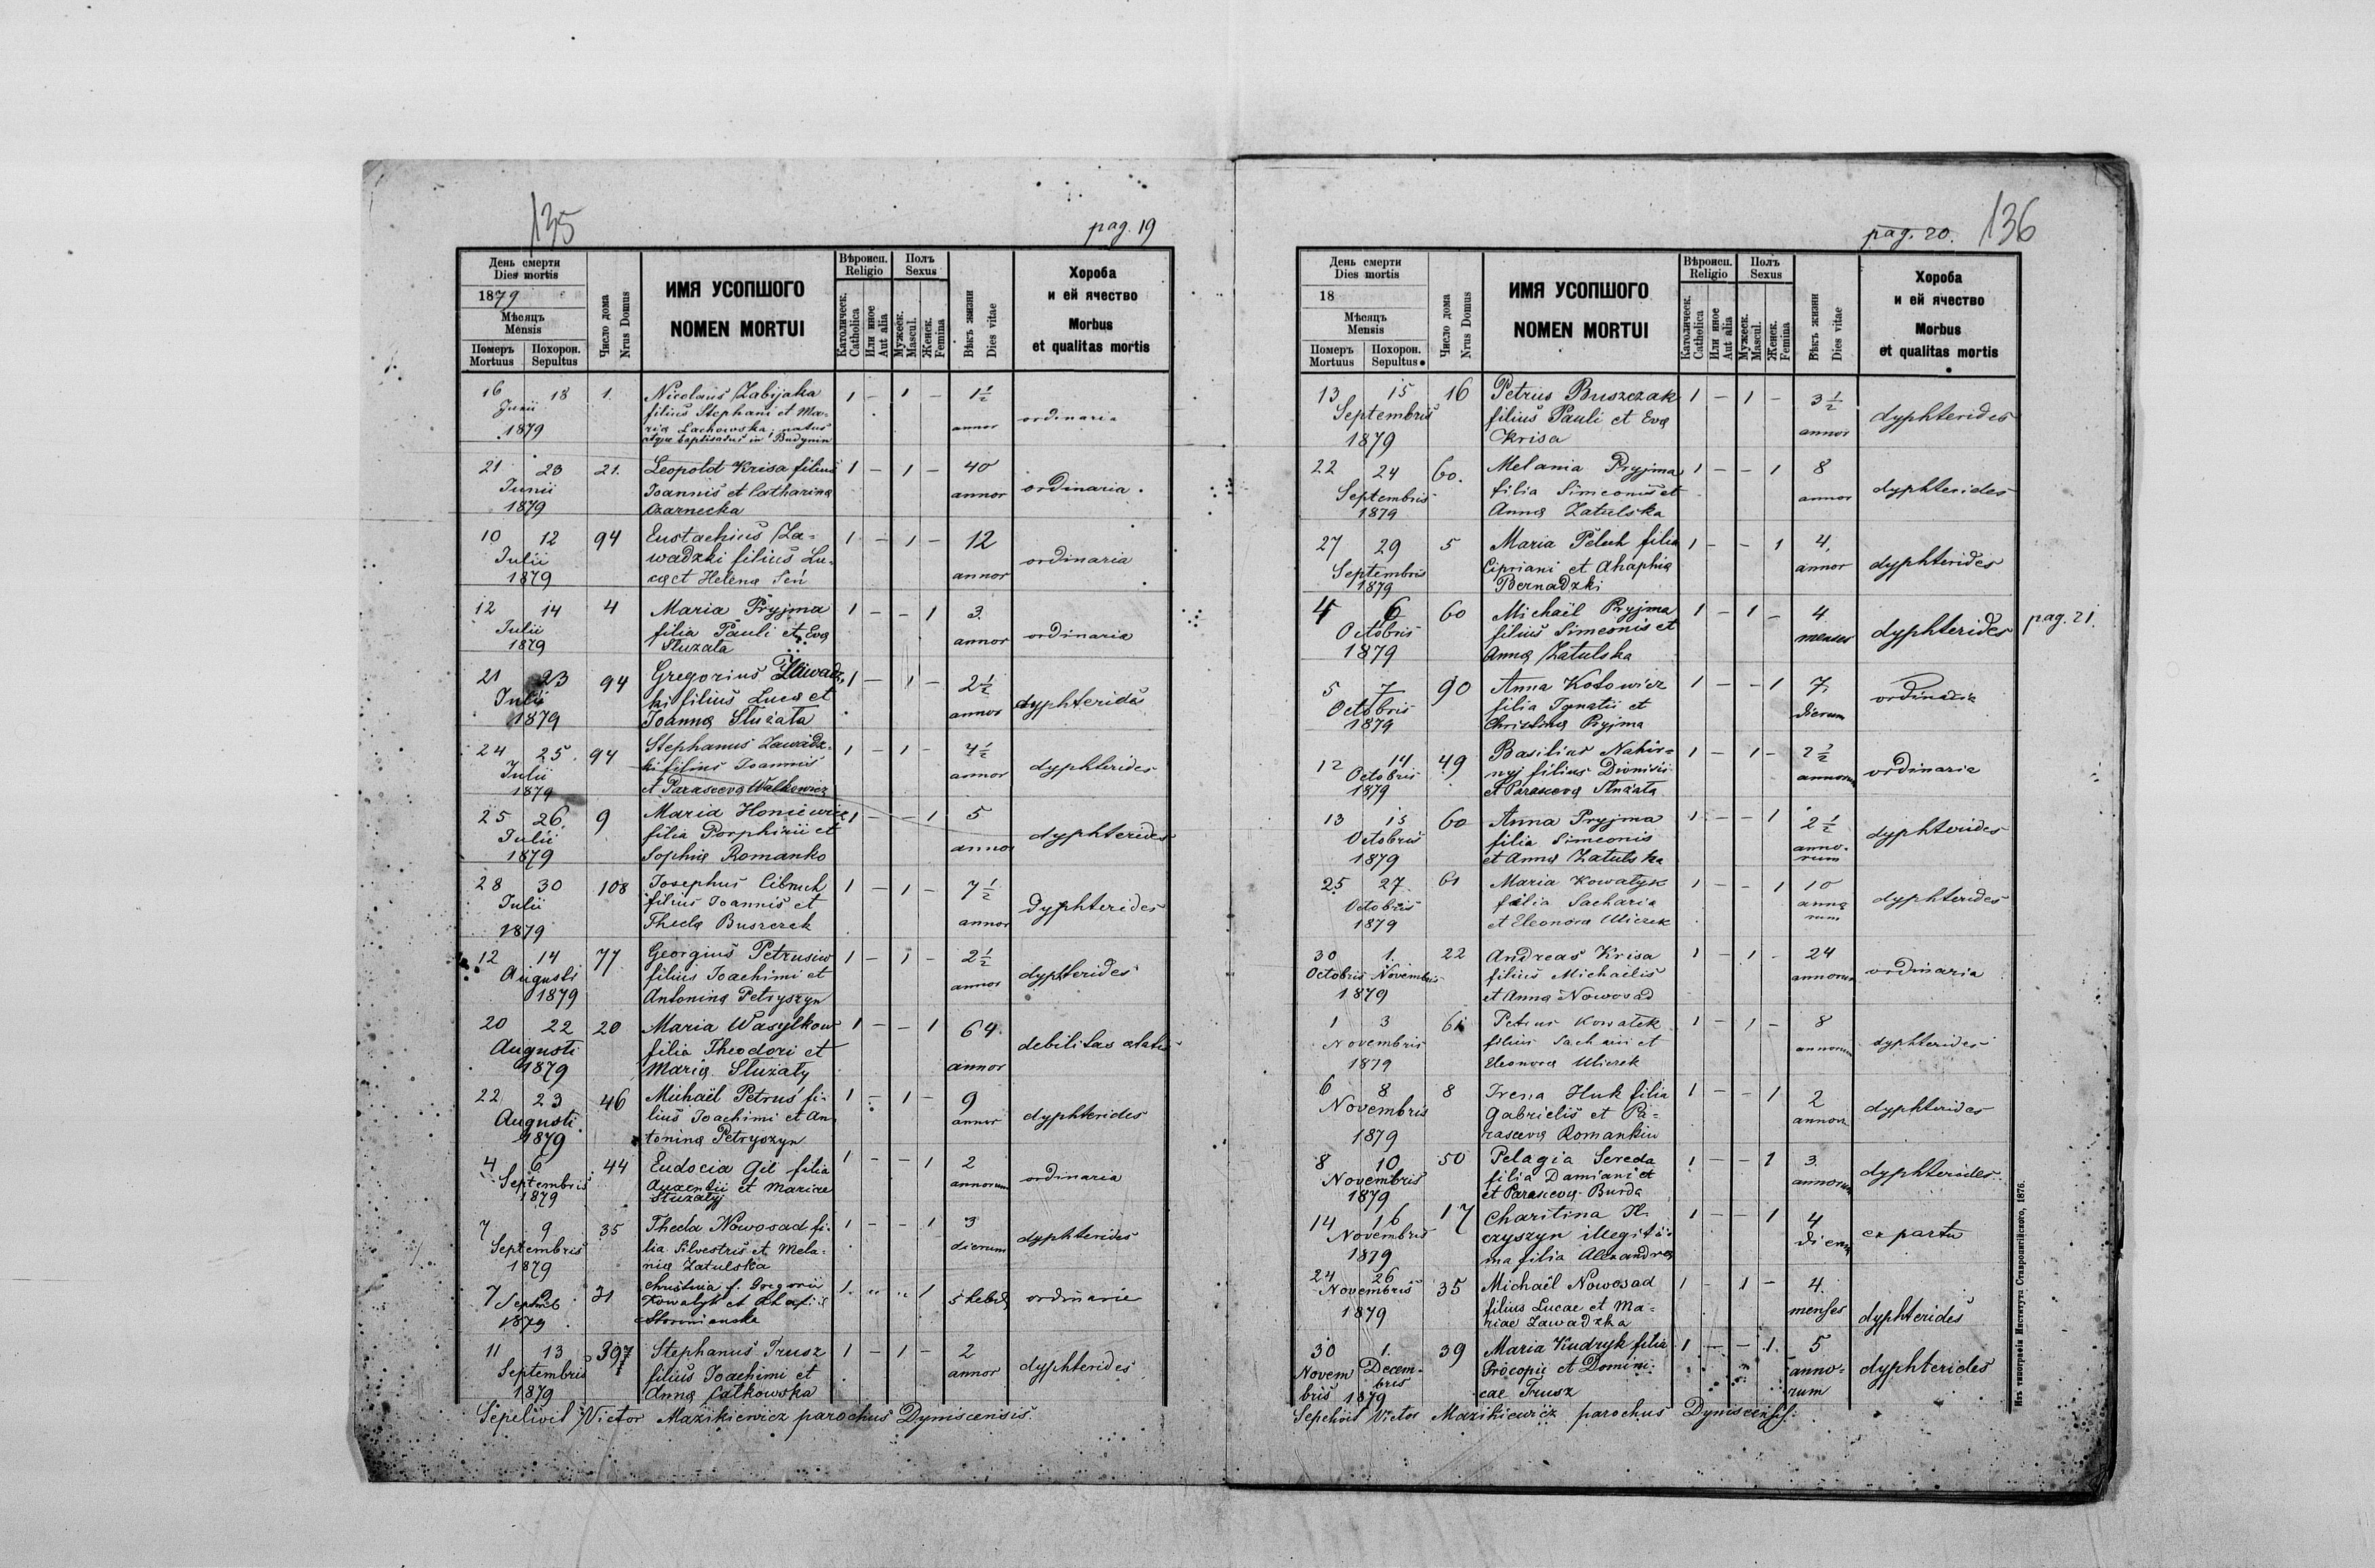 135
pag. 19
День смерти
Dies mortis
1879
Мѣсяцъ
Mensis
Померъ
Mortuus
Похорон.
Sepultus
Число дома
Nrus Domus
ИМЯ УСОПШОГО
NOMEN MORTUI
Вѣроисп.
Religio
Католическ.
Catholica
Или иное
Aut alia
Полъ
Sexus
Мужеск.
Mascul.
Женск.
Femina
Вѣкъ жизни
Dies vitae
Хороба
и ей ячество
Morbus
et qualitas mortis
16 18 1. Nicolaus Zabijaka 1 – 1 – 1½
Junii filius Stephani et Ma- ordinaria
1879 ria Lachowska, natus annor
atque baptisatus in Budynin
21 23 21. Leopold Krisa filius 1 – 1 – 40
Junii Joannis et Catharina annor ordinaria.
1879 Czarnecka
10 12 94 Eustachius Za- 1 – 1 – 12
Julii wadzki filius Lu- ordinaria
1879 ca et Helena Sen annor
12 14 4 Maria Pryjma 1 – – 1 3.
Julii filia Pauli et Eva annor ordinaria
1879 Sluzata
21 23 94 Gregorius Zawadz- 1 – 1 – 2½
Julii ki filius Luca et dyphterides
1879 Joanna Sluzata annor
24 25 94 Stephanus Zawadz- 1 – 1 – 4½
Julii ki filius Joannis annor dyphterides
1879 et Parasceva Walkewicz
25 26 9 Maria Honiewicz 1 – – 1 5
Julii filia Porphirii et dyphterides
1879 Sophia Romanko annor
28 30 108 Josephus Cibruch 1 – 1 – 7½
Julii filius Joannis et dyphterides
1879 Thecla Buszczek annor
12 14 77 Georgius Petrusiw 1 – 1 – 2½
Augusti filius Joachimi et dyphterides
1879 Antonina Petryszyn annor
20 22 20 Maria Wasylkow 1 – – 1 64.
Augusti filia Theodori et debilitas ætatis
1879 Maria Sluzaty annor
22 23 46 Michaël Petrus fi- 1 – 1 – 9
Augusti lius Joachimi et An- annor dyphterides
1879 tonina Petryszyn
4 6 44 Eudocia Gil filia 1 – – 1 2
Septembris Auxentii et Mariae annorum ordinaria
1879 Sluzatyj
7 9 35 Thecla Nowosad fi- 1 – – 1 3
Septembris lia Silvestris et Mela- dierum dyphterides
1879 nia Zatulska
7 9 31 Christina f. Gregorii 1. " " 1
Septemb Kowalyk et ordinaria
1879
11 13 397 Stephanus Trusz 1 – 1 – 2
Septembris filius Joachimi et annor dyphterides
1879 Anna Calkowska
Sepelivit Victor Mazikiewicz parochus Dyniscensis.
pag. 20. 136
День смерти
Dies mortis
18
Мѣсяцъ
Mensis
Померъ
Mortuus
Похорон.
Sepultus
Число дома
Nrus Domus
ИМЯ УСОПШОГО
NOMEN MORTUI
Вѣроисп.
Religio
Католическ.
Catholica
Или иное
Aut alia
Полъ
Sexus
Мужеск.
Mascul.
Женск.
Femina
Вѣкъ жизни
Dies vitae
Хороба
и ей ячество
Morbus
et qualitas mortis
13 15 16 Petrus Buszczak 1 – 1 – 3½
Septembris filius Pauli et Eva dyphterides
1879 Krisa annor
22 24 60. Melania Pryjma 1 – – 1 8
Septembris filia Simeonis et annor dyphterides
1879 Anna Zatulska
27 29 5 Maria Pelech filia 1 – – 1 4.
Septembris Cipriani et Ahaphia annor dyphterides
1879 Bernadzki
4 6 60 Michaël Pryjma 1 – 1 – 4
Octobris filius Simeonis et menses dyphterides pag. 21.
1879 Anna Zatulska
5 7 90 Anna Kotowicz 1 – – 1 7
Octobris filia Ignatii et dierum ordinaria
1879 Christina Pryjma
12 14 49 Basilius Nahir- 1 – 1 – 2½
Octobris nyj filius Dionisii annorum ordinaria
1879 et Parasceva Sluzata
13 15 60 Anna Pryjma 1 – – 1 2½
Octobris filia Simeonis anno- dyphterides
1879 et Anna Zatulska rum
25 27 61 Maria Kowalyk 1 – – 1 10
Octobris filia Sacharia anno dyphterides
1879 et Eleonora Uliczek rum
30 1. 22 Andreas Krisa 1 – 1 – 24
Octobris Novembris filius Michaelis annorum ordinaria
1879 et Anna Nowosad
1 3 61 Petrus Kowalek 1 – 1 – 8
Novembris filius Sacharii et annorum dyphterides
1879 Eleonora Uliczek
6 8 8 Irena Huk filia 1 – – 1 2
Novembris Gabrielis et Pa- annorum dyphterides
1879 rasceva Romankiw
8 10 50 Pelagia Sereda 1 – – 1 3.
Novembris filia Damiani et annorum dyphterides
1879 et Parasceva Burda
14 16 17 Charitina Il- 1 – – 1 4
Novembris czyszyn illegiti- dierum ex partu
1879 ma filia Alexandra
24 26 35 Michaël Nowosad 1 – 1 – 4.
Novembris filius Lucae et Ma- menses dyphterides
1879 riae Zawadzka
30 1. 39 Maria Kudryk filia 1 – – 1. 5
Novem Decem- Procopii et Domini- anno- dyphterides
bris bris 1879 cae Trusz rum
Sepelivit Victor Mazikiewicz parochus Dyniscensis.
Изъ типографіи Института Ставропигійского, 1876.